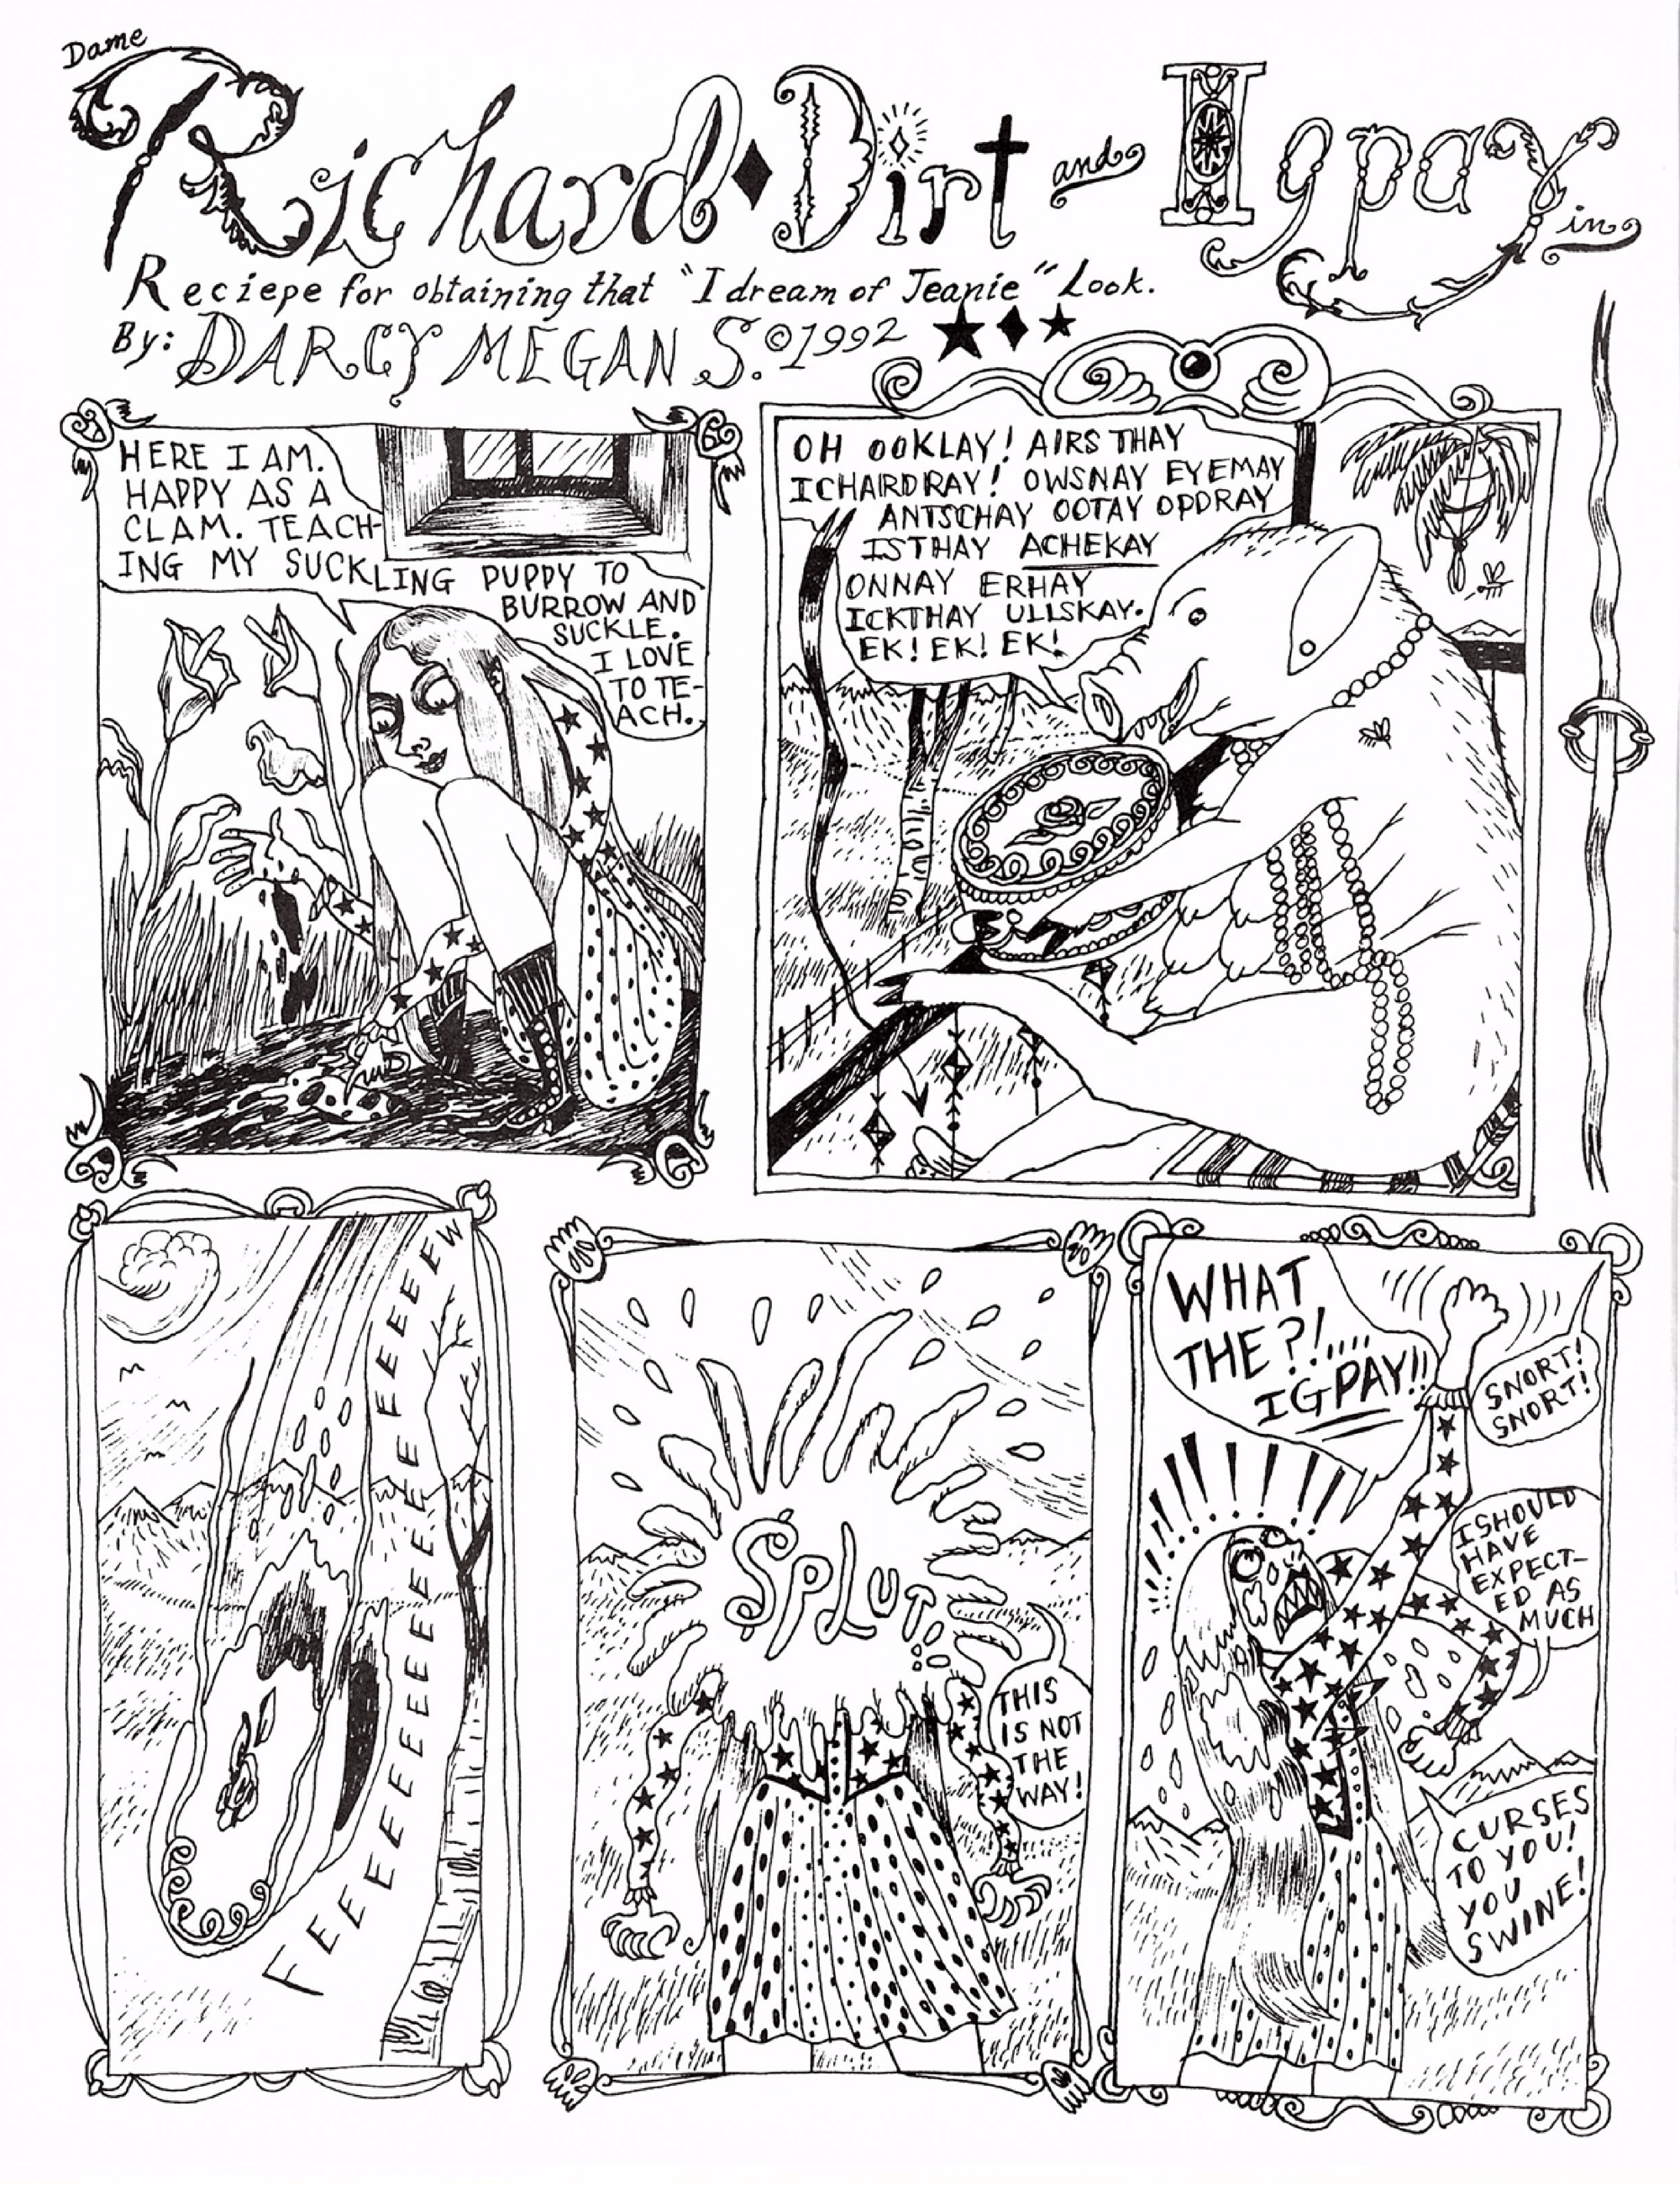 Dame
Richard Dirt and Igpay in
Reciepe for obtaining that "I dream of Jeanie" Look.
By: DARCY MEGAN S. © 1992
HERE I AM.
HAPPY AS A
CLAM. TEACH-
ING MY SUCKLING PUPPY TO
BURROW AND
SUCKLE.
I LOVE
TO TE-
ACH.
OH OOKLAY! AIRS THAY
ICHARDRAY! OWSNAY EYEMAY
ANTSCHAY OOTAY OPDRAY
ISTHAY ACHEKAY
ONNAY ERHAY
ICKTHAY ULLSKAY.
EK! EK! EK!
FEEEEEEEEEEEEEEEEEEEEEEW
SPLUT!
THIS
IS NOT
THE
WAY!
WHAT
THE?!....
IGPAY!!
SNORT!
SNORT!
I SHOULD
HAVE
EXPECT-
ED AS
MUCH
CURSES
TO YOU!
YOU
SWINE!